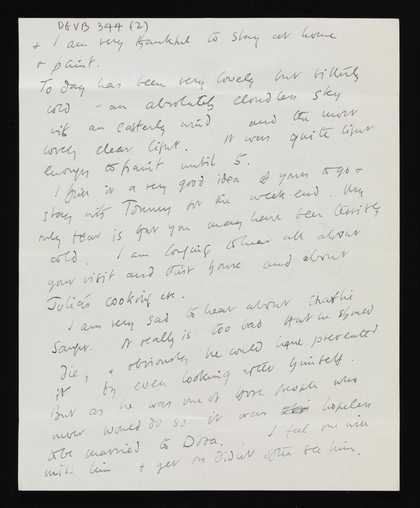 DEVB 344 (2)
+ I am very thankful to stay at home
+ paint.
To day has been very lovely but bitterly
cold - an absolutely cloudless sky
with an easterly wind and the most
lovely clear light. It was quite light
enough to paint until 5.
I think it a very good idea of yours to go +
stay with Tommy for the week-end. My
only fear is that you may have been terribly
cold. I am longing to hear all about
your visit and that house and about
Julia's cooking etc.
I am very sad to hear about Charlie
Sanger. It really is too bad that he should
die, + obviously he could have prevented
it by even looking after himself.
But as he was one of those people who
never would do so it was hopeless
to be married to Dora. I feel one will
miss him + yet one didn't often see him.